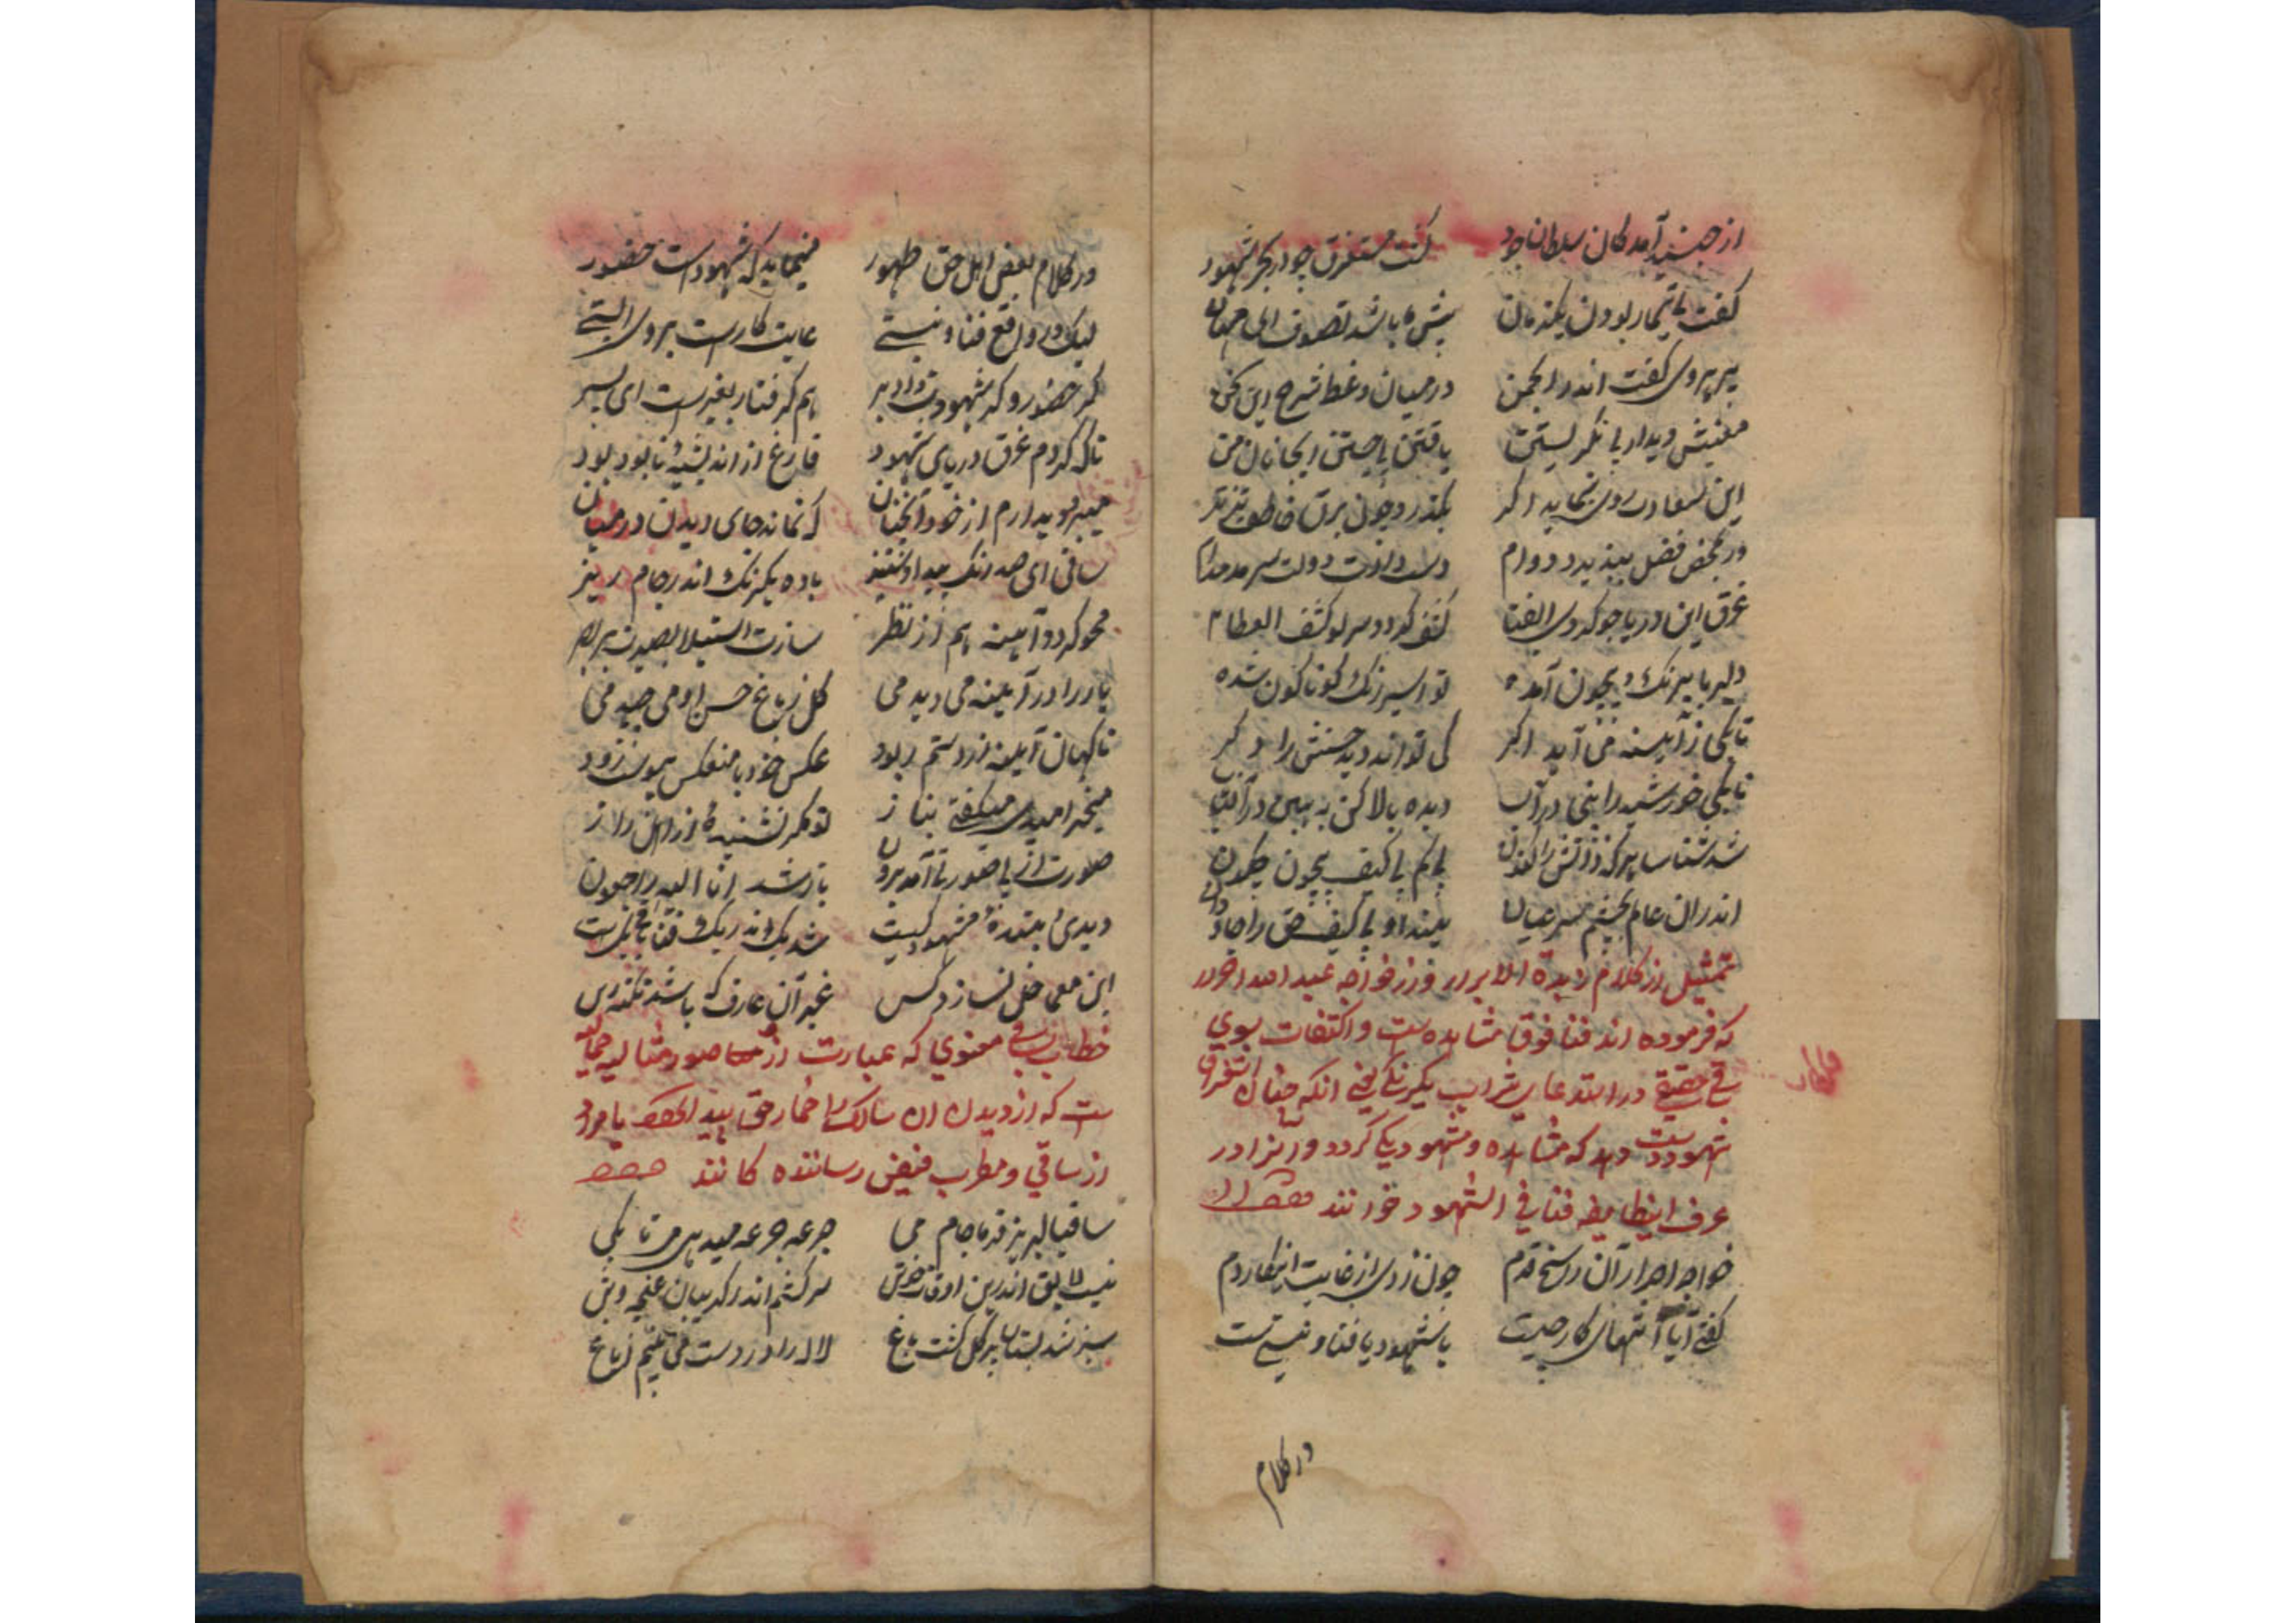 از جنید آمد کان سلطان جود گشت مستغرق چو در بحر شهود
کفت بی تیمار بودن یکزمان پیش ما باشد تصوف ای جوان
پیر پیروی کفت اندر انجمن در میان وعظ شرح این سخن
معنیش دیدار بی نکریستن یافتن بی جستن ای جانان من
این سعادت روی بنماید اکر بگذرد چون برق خاطف تیزتر
ور بمحض فضل بپذیرد دوام دست دادت دولت سرمد مدام
غرق این دریا چو کردی ای فتا کشف کردد سر لو کشف الغطا
دلبر ما بیرنک و بیچون آمده تو اسیر رنک کوناکون شده
تا یکی ز آیینه می آید اکر کی تواند دید حسنش را دکر
تا بکی خورشید را بینی در آب دیده بالا کن به بین در آفتاب
شد شناسا هر که ذاتش را کنون بی کم بی کیف بیچون چکون
اندران عالم بچشم سر عیان بیند او بی کیف حق را جاودان
تمثیل از کلام زبدة الابرار خواجه عبید الله احرار
که فرموده اند فنا فوق مشاهده ست و التفات بسوی
ساقی حقیقی در استدعای شراب یکرنکی یعنی انکه چنان استغراق
شهود دست دهد که مشاهده و مشهود یکی کردد و آنرا در
عرف اینطایفه فنا فی الشهود خوانند
خواجه احرار آن راسخ قدم چون زدی از غایت انکار دم
کفتی آیا انتهای کار چیست با شهود یا فنا و نیستیست
در کلام
در کلام بعض اهل حق ظهور مینماید که شهودست حضور
لیک در واقع فنا و نیستی غایت کارست بروی ایستی
کر حضور و کر شهودت داد بر هم کرفتار بغیرست ای پسر
تا که کردم غرق دریای شهود فارغ از اندیشهٔ نابود بود
میبرد دیدارم از خود آنچنان که نماند جای دیدن در میان
ساقی ای صد رنک بیدا و ستیز باده یکرنک اندر جام ریز
محو کردد آیینه هم از نظر سازت استیلا بصیرت بر بصر
یار را در آیینه می دیدمی کل ز باغ حسن او می چیدمی
ناکهان آیینه از دستم ربود عکس خود با منعکس پیوست زود
میخرامیدی میکفتی بناز تو مکر نشنیدهٔ از اهل راز
صورت از بی صورتی آمد برون باز شد انا الیه راجعون
دیدی بیننده مشهود کیست شد یک اندر یک
این معما حل نسازد کس غیر آن عارف که باشد نکته رس
خطاب بساقی معنوی که عبارت از صور مثالیه جمالیه
ست که از دیدن ان سالک را خمار حق پید یا مراد
از ساقی و مطرب فیض رساننده کانند
ساقیا لبریز فرما جام می جرعه جرعه میدهی من تا بکی
نیست لایق اندرین اوقات خوش سر کشم اندر کریبان غنچه وش
سبز شد بستان پر کل کشت باغ لاله را در دست می بینم ایاغ